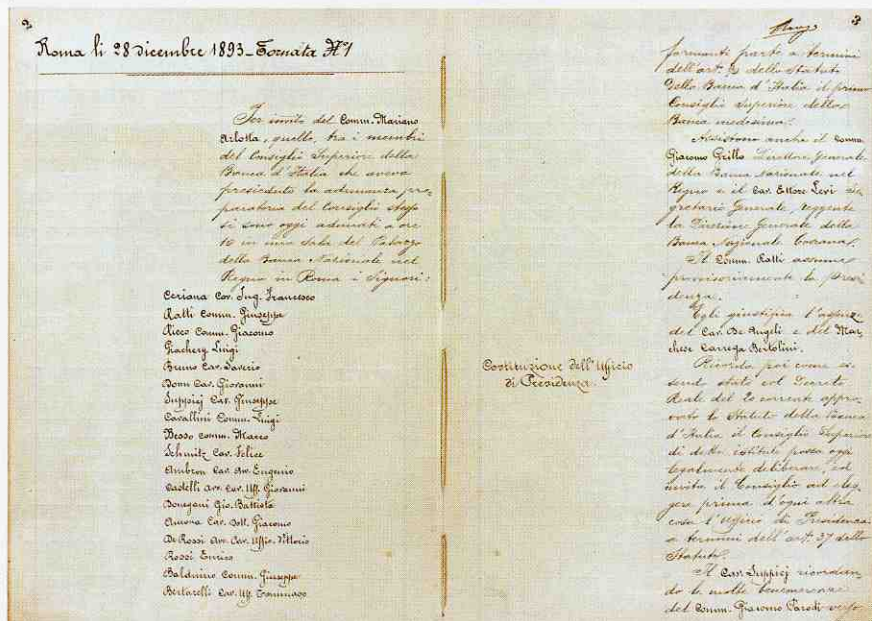 2
Roma li 28 dicembre 1893 - Tornata N°1
Per invito del Comm. Mariano
Arlotta, quello, tra i membri
del Consiglio Superiore della
Banca d'Italia che aveva
presieduto la adunanza pre-
paratoria del Consiglio stesso
si sono oggi adunati a ore
10 in una sala del Palazzo
della Banca Nazionale nel
Regno in Roma i Signori:
Ceriana Cav. Ing. Francesco
Ratti Comm. Giuseppe
Ricco Comm. Giacomo
Luigi
Bruno Cav. Saverio
Cav. Giovanni
Suppiej Cav. Giuseppe
Cavallini Comm. Luigi
Besso Comm. Marco
Schmitz Cav. Felice
Ambron Cav. Avv. Eugenio
Castelli Avv. Cav. Uff. Giovanni
Gio. Battista
Cav. Dott. Giacomo
De Rossi Avv. Cav. Uffic. Vittorio
Rossi Enrico
Balduino Comm. Giuseppe
Bertarelli Cav. Uff. Tommaso
Costituzione dell'Ufficio
di Presidenza.
3
formanti parte a termini
dell'art. dello Statuto
della Banca d'Italia il primo
Consiglio Superiore della
Banca medesima.
Assistono anche il Comm.
Giacomo Grillo Direttore Generale
della Banca Nazionale nel
Regno e il Cav. Ettore Levi Se-
gretario Generale, reggente
la Direzione Generale della
Banca Nazionale Toscana.
Il Comm. Ratti assume
provvisoriamente la presi
denza.
Egli giustifica l'assenza
del Cav. De Angeli e del Mar-
chese Carrega Bertolini.
Ricorda poi come es
sendo stato col Decreto
Reale del 20 corrente appro-
vato lo Statuto della Banca
d'Italia il Consiglio Superiore
di detto istituto possa oggi
legalmente deliberare, ed
invita il Consiglio ad eleg
gere prima d'ogni altra
cosa l'Ufficio di Presidenza
a termini dell'art. 37 dello
Statuto.
Il Cav. Suppiej ricordan-
do le molte benemerenze
del Comm. Giacomo Parodi verso